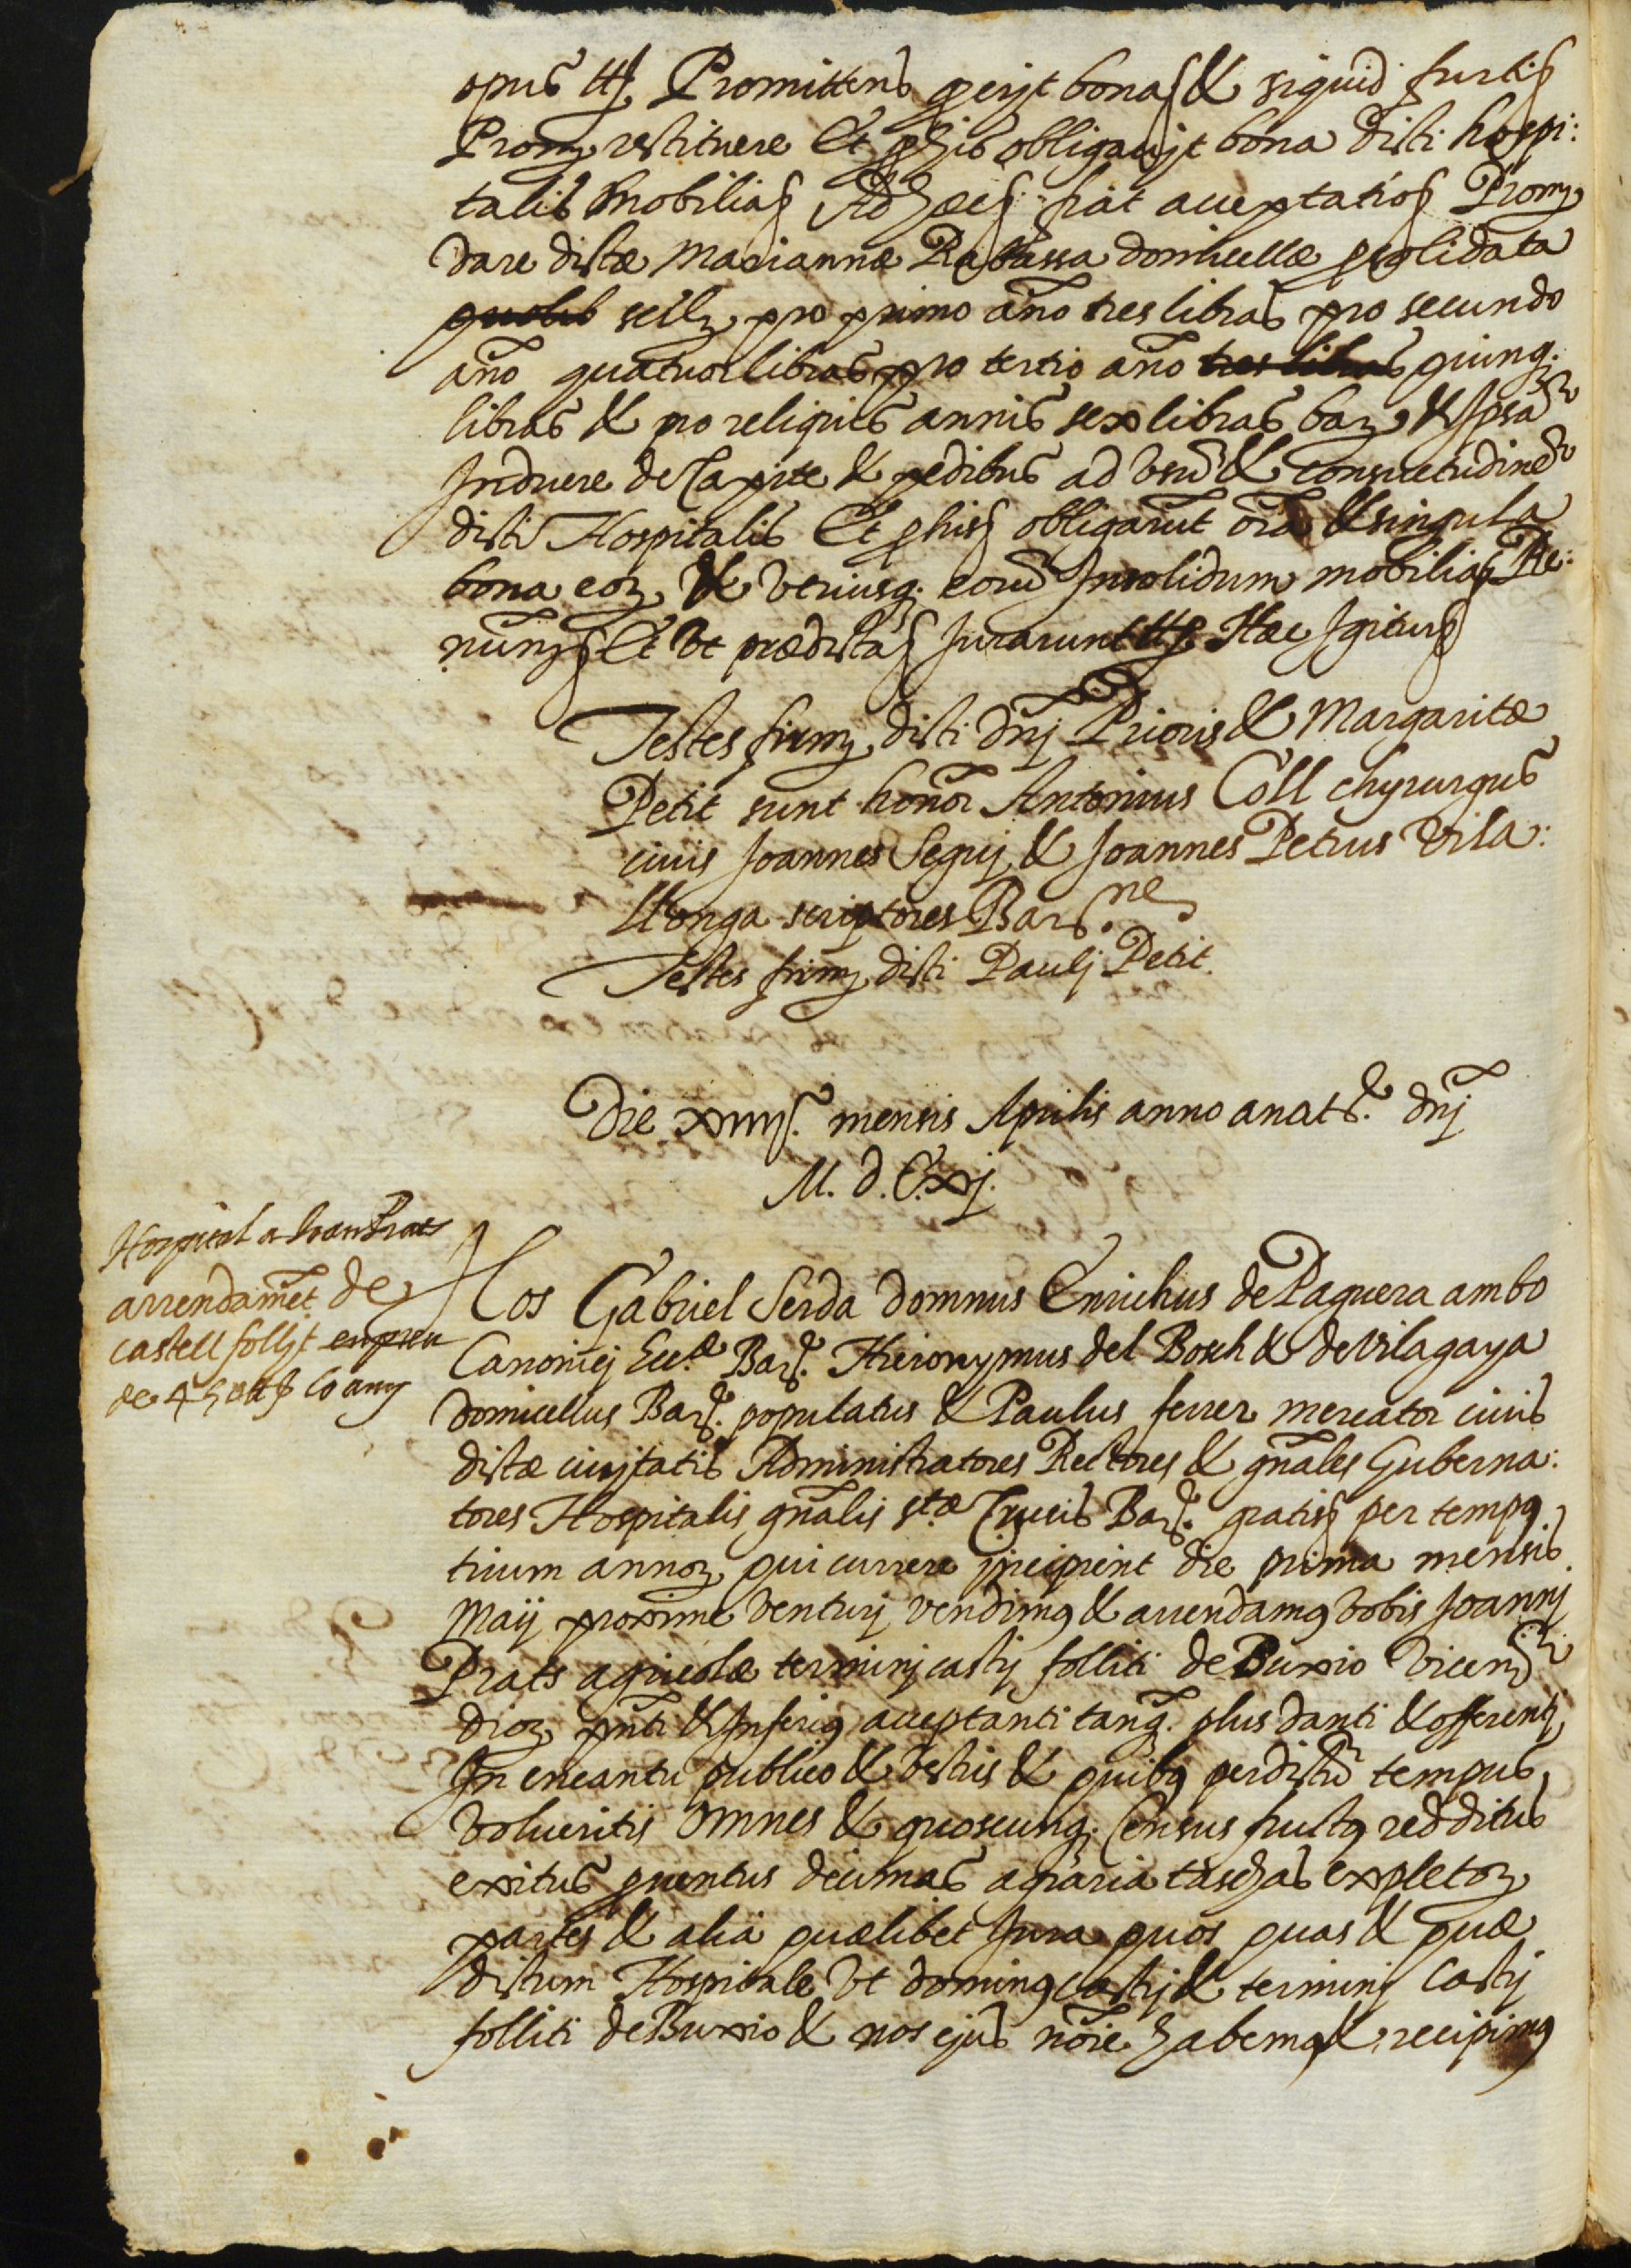 opus Promittens bona & siquid
Prom restituere Et obligavit bona dicti hospi:
talis mobilia Ad fiat acceptatio Prom
dare dictæ Mariannæ Rabassa domicellæ solidata
quolib sellz pro primo año tres libras pro secundo
año quatuor libras pro tertio año tres libras quinq.
libras & pro reliquis annis sex libras & Ipsā
Induere de Capite & pedibus ad usū & consuetudinē
dicti Hospitalis Et obligarunt oīa & singula
bona eoz & utriusq. eorū Insolidum mobilia Re:
nun Et Ut prædicta Jurarunt Hæc Igitur
Testes firmæ dicti dñj Prioris & Margaritæ
Petit sunt honor Antonius Coll chyrurgus
civis Joannes Seguj & Joannes Petrus Vila:
llonga scriptores Bar.ne
Testes firmæ dicti Paulj Petit.
Die xiiij. mensis Aprilis anno a nat. dñj
M. d. C. xj.
Hospital a Joan Prats
arrendamēt de
castell follit en preu
de lo any
Nos Gabriel Serda Domnus Enrichus de Paguera ambo
Canonicj Ecc.æ Bar. Hieronymus del Bosch & de Vilagaya
domicellus Bar. populatus & Paulus ferrer mercator civis
dictæ civjtatis Administratores Rectores & gñales Guberna:
tores Hospitalis gñalis s.tæ Crucis Bar. gratis per tempq
trium annoz qui currere jncipient die prima mensis
Maij proxime venturj vendimq & arrendamq vobis Joannj
Prats agricolæ terminj castrj folliti de Buxio Vicen
dioz pñti & Inferiq acceptanti tanq. plus danti & offerentj
In encantu publico & vestris & quibq perdictū tempus
volueritis omnes & quoscunq. Census fructq redditus
exitus proventus decimas agraria taschas expletoz
partes & alia quælibet Jura quos quas & quæ
dictum Hospitale ut dominq castrj & terminj Castrj
folliti de Buxio & nos ejus nōie habemq & recipimq